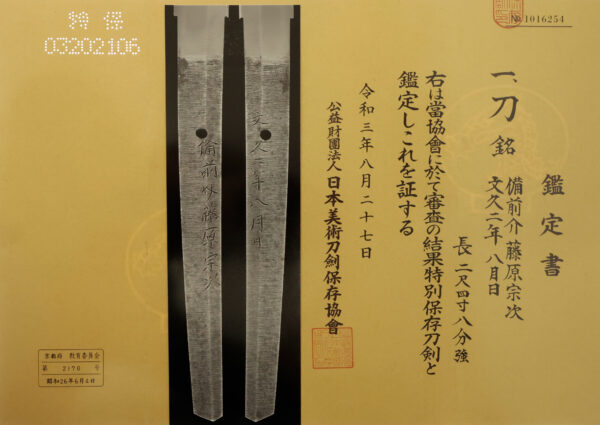 № 1016254
鑑定書
一、刀 銘 備前介藤原宗次
文久二年八月日
長 二尺四寸八分強
右は當協會に於て審査の結果特別保存刀剣と
鑑定しこれを証する
令和三年八月二十七日
公益財團法人 日本美術刀劍保存協會
文久二年八月日
備前介藤原宗次
特保
03202106
京都府 教育委員会
第 2170 号
昭和26年6月4日